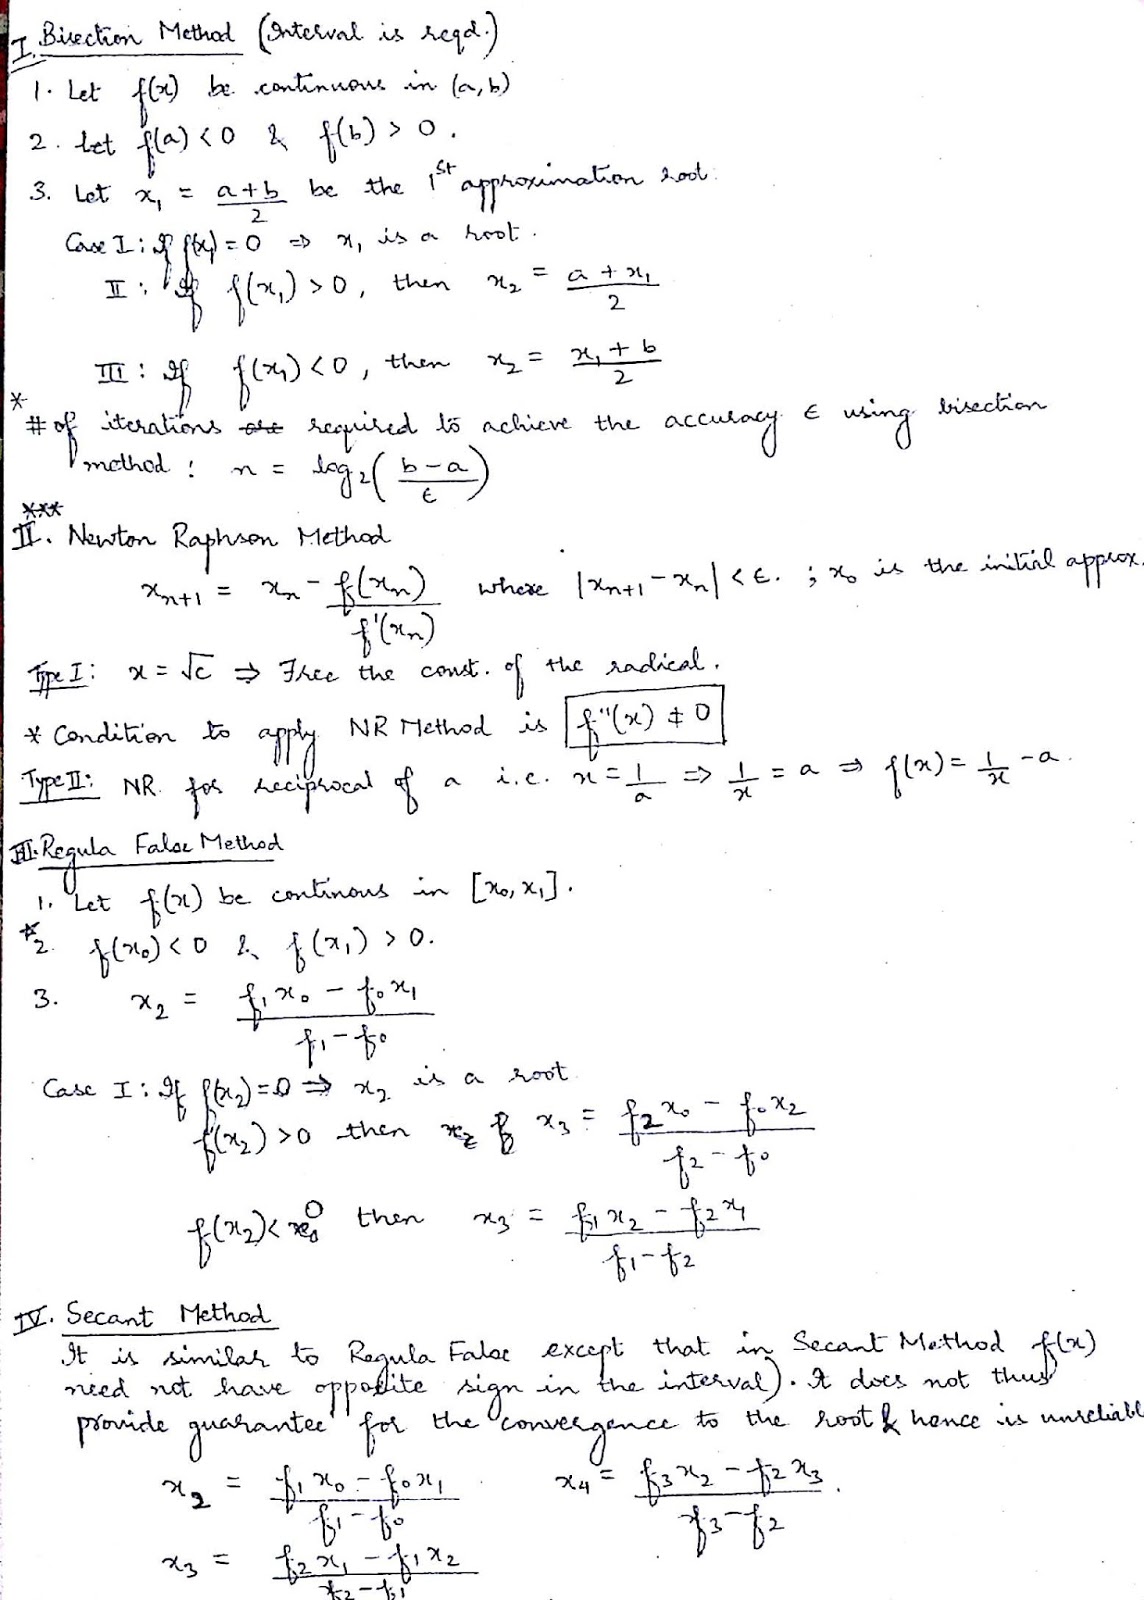 I. Bisection Method (Interval is reqd.)
1. Let f(x) be continuous in (a, b)
2. Let f(a) < 0 & f(b) > 0.
3. Let x₁ = (a+b)/2 be the 1st approximation root.
Case I: If f(x₁) = 0 ⇒ x₁ is a root.
II: If f(x₁) > 0, then x₂ = (a + x₁)/2
III: If f(x₁) < 0, then x₂ = (x₁ + b)/2
* # of iterations required to achieve the accuracy ϵ using bisection
method: n = log₂((b-a)/ϵ)
***
II. Newton Raphson Method
xₙ₊₁ = xₙ - f(xₙ)/f'(xₙ) where |xₙ₊₁ - xₙ| < ϵ. ; x₀ is the initial approx.
Type I: x = √c ⇒ Free the const. of the radical.
* Condition to apply NR Method is f''(x) ≠ 0
Type II: NR for reciprocal of a i.e. x = 1/a ⇒ 1/x = a ⇒ f(x) = 1/x - a.
III. Regula False Method
1. Let f(x) be continous in [x₀, x₁].
*2. f(x₀) < 0 & f(x₁) > 0.
3. x₂ = (f₁x₀ - f₀x₁)/(f₁ - f₀)
Case I: If f(x₂) = 0 ⇒ x₂ is a root
f(x₂) > 0 then x₃ = (f₂x₀ - f₀x₂)/(f₂ - f₀)
f(x₂) < 0 then x₃ = (f₁x₂ - f₂x₁)/(f₁ - f₂)
IV. Secant Method
It is similar to Regula False except that in Secant Method f(x)
need not have opposite sign in the interval). It does not thus
provide guarantee for the convergence to the root & hence is unreliable
x₂ = (f₁x₀ - f₀x₁)/(f₁ - f₀) x₄ = (f₃x₂ - f₂x₃)/(f₃ - f₂).
x₃ = (f₂x₁ - f₁x₂)/(f₂ - f₁)